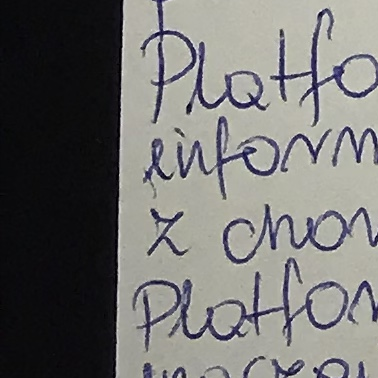 Platfo
inform
z chor
Platfor